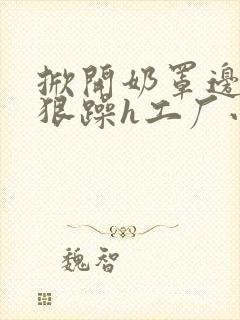 掀開奶罩邊
狠躁h工厂
魏智